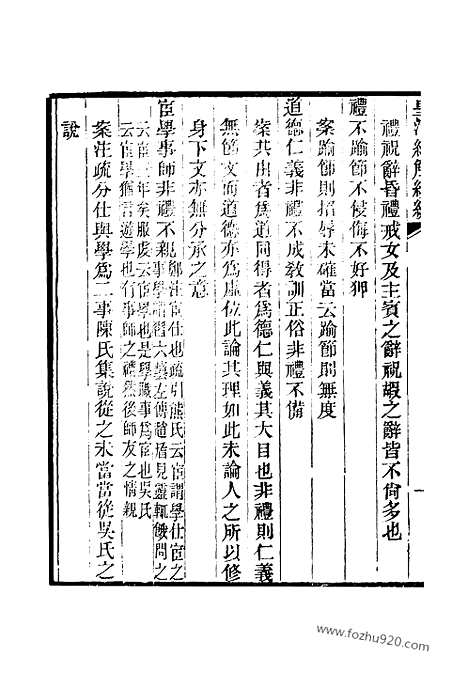 皇清經解續編
一
禮祝辭昏禮戒女及主賓之辭祝嘏之辭皆不尙多也
禮不踰節不侵侮不好狎
案踰節則招辱未確當云踰節則無度
道德仁義非禮不成敎訓正俗非禮不備
案共由者爲道同得者爲德仁與義其大目也非禮則仁義
無節文而道德亦爲虛位此論其理如此未論人之所以修
身下文亦無分承之意
宦學事師非禮不親鄭注宦仕也疏引熊氏云宦謂學仕宦之
事學謂習六藝左傳趙盾見靈輒餓問之
云宦三年矣服虔云宦學也是學職事爲宦也吳氏
云宦學猶言遊學也有事師之禮然後師友之情親
案注疏分仕與學爲二事陳氏集說從之未當當從吳氏之
說
www.fozhu920.com